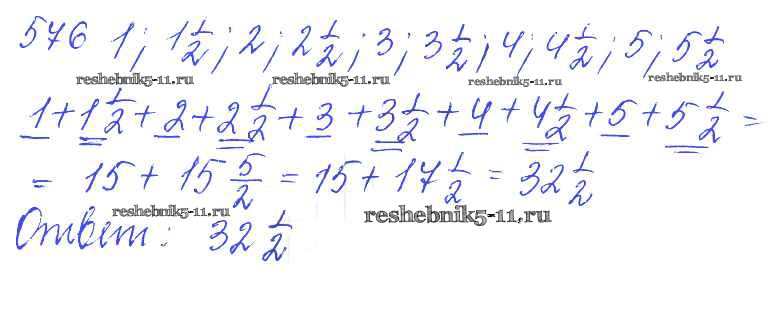 576 1; 1 1/2; 2; 2 1/2; 3; 3 1/2; 4; 4 1/2; 5; 5 1/2
reshebnik5-11.ru reshebnik5-11.ru reshebnik5-11.ru reshebnik5-11.ru
1 + 1 1/2 + 2 + 2 1/2 + 3 + 3 1/2 + 4 + 4 1/2 + 5 + 5 1/2 =
= 15 + 15 5/2 = 15 + 17 1/2 = 32 1/2
reshebnik5-11.ru reshebnik5-11.ru
Ответ: 32 1/2